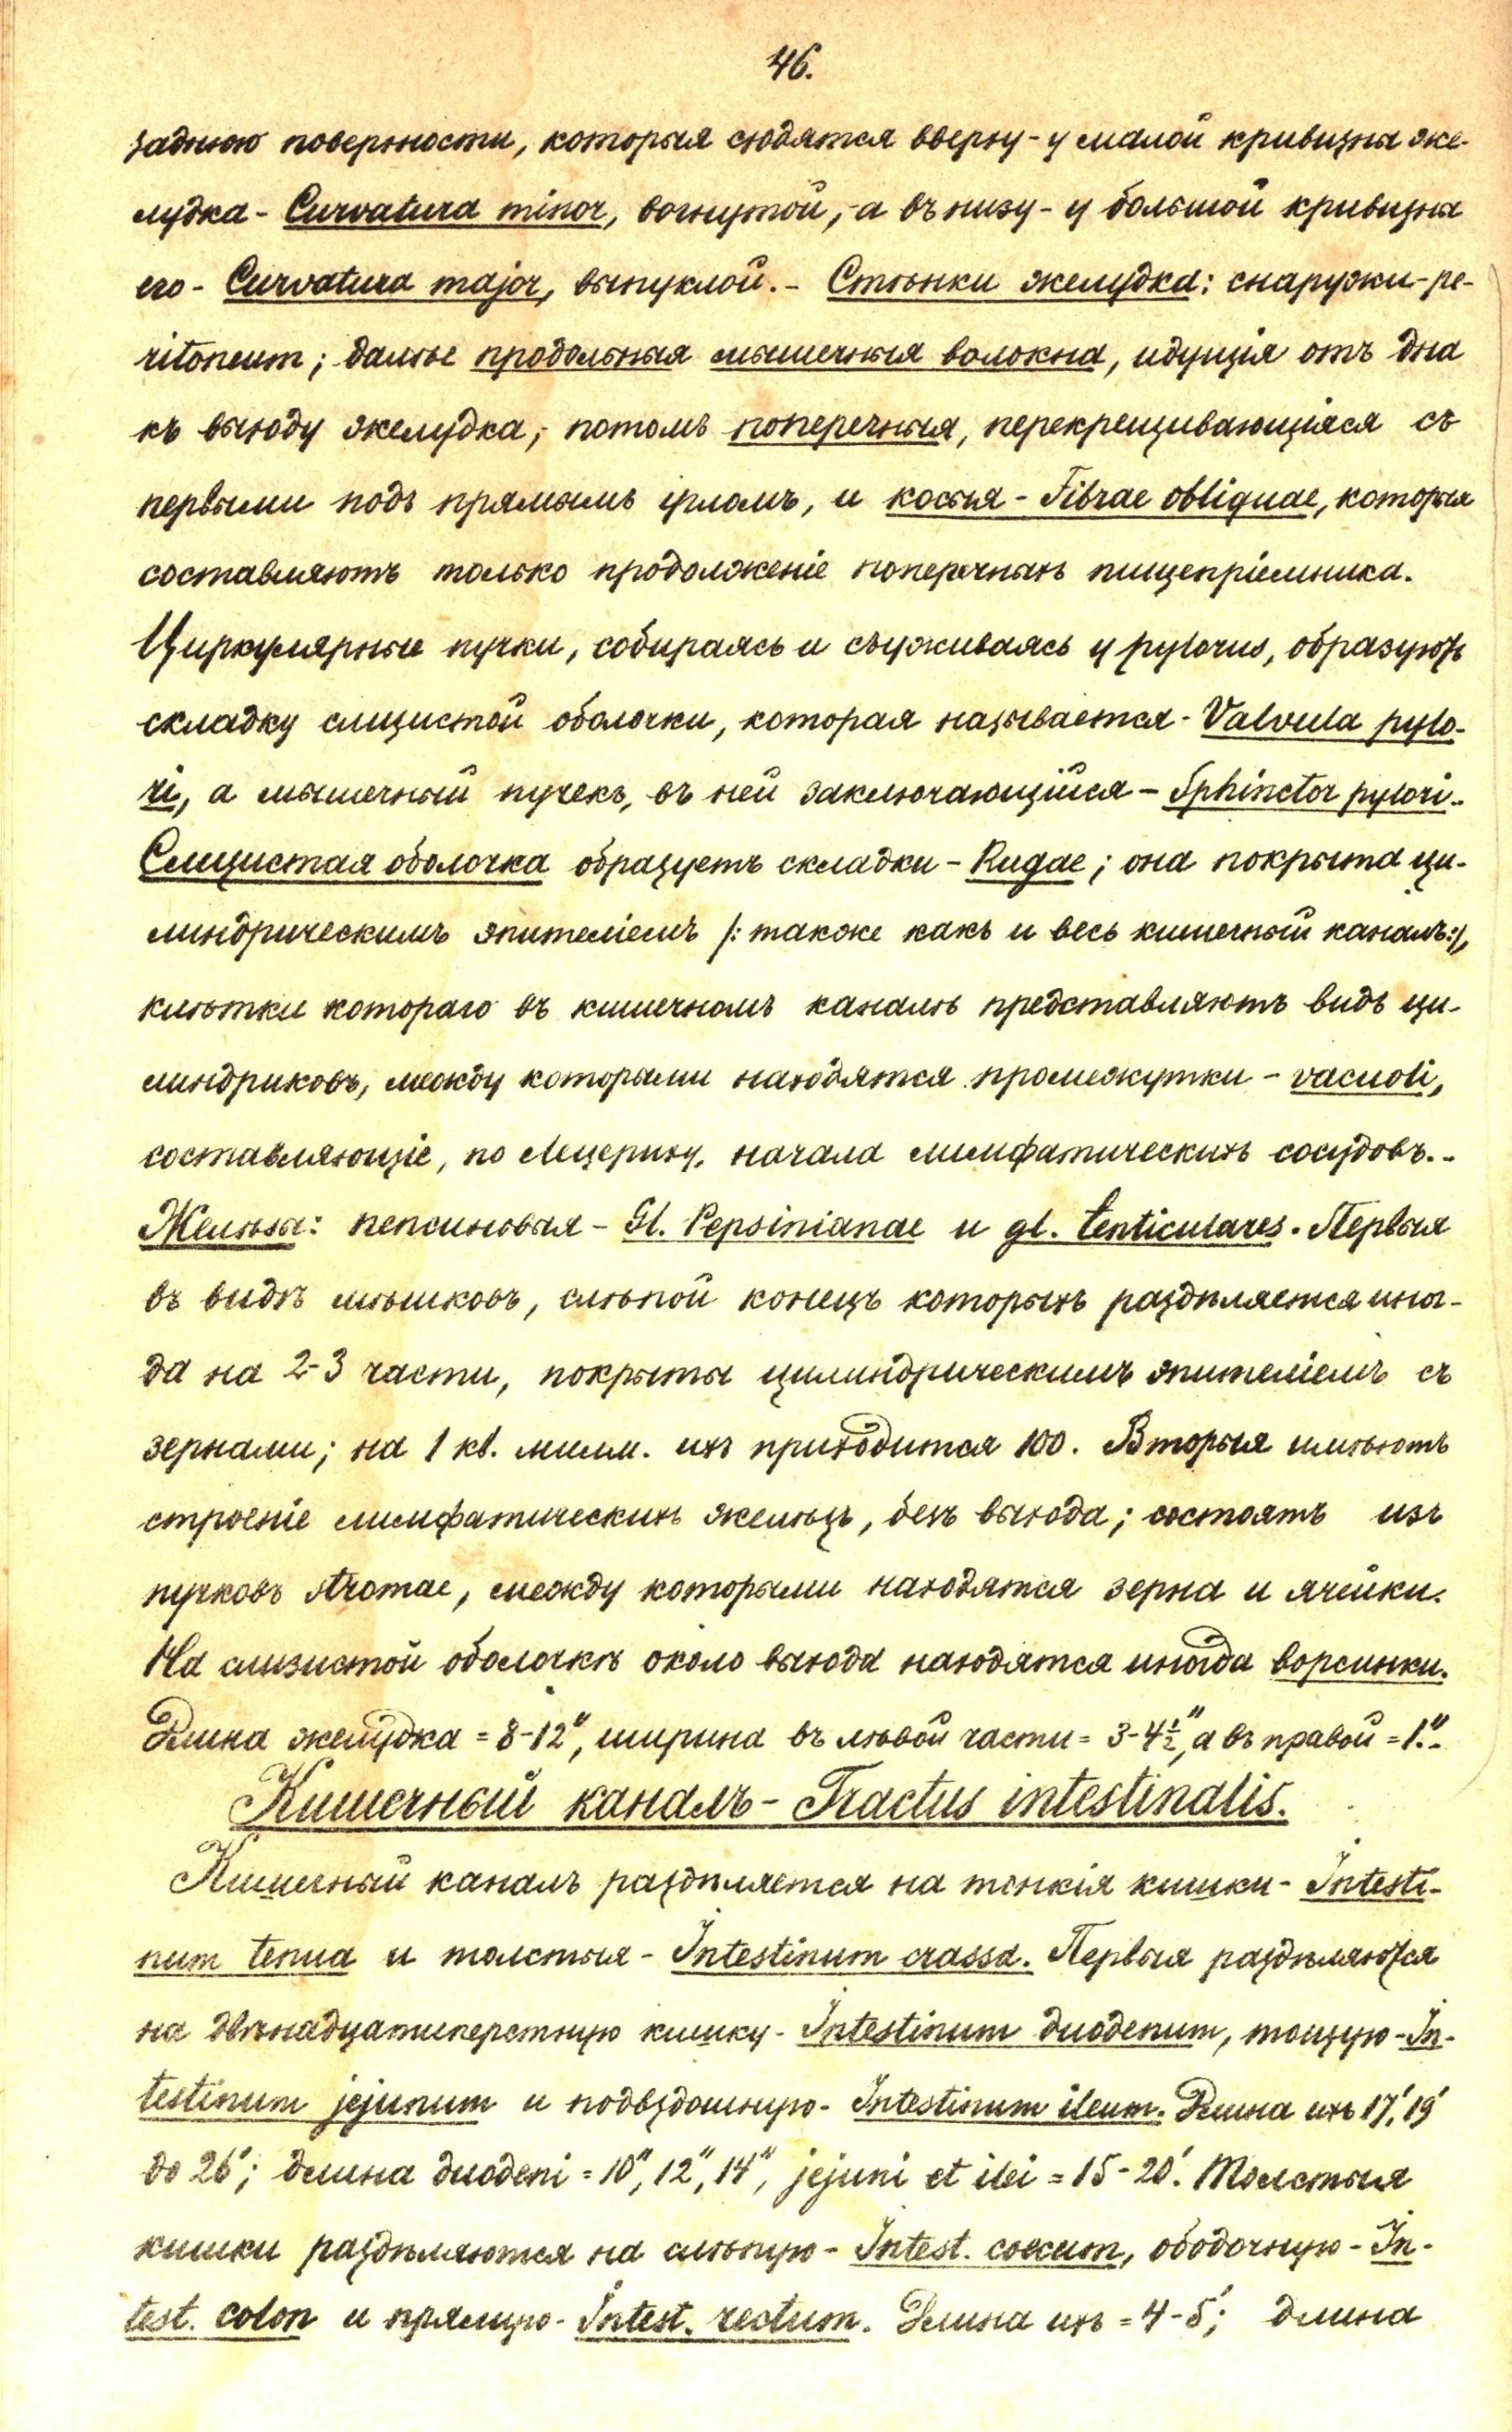 46.
заднюю поверхности, которыя сходятся вверху - у малой кривизны же-
лудка - Curvatura minor, вогнутой, - а въ низу - у большой кривизны
его - Curvatura major, выпуклой. - Стѣнки желудка: снаружи - pe-
ritoneum; далѣе продольныя мышечныя волокна, идущія отъ дна
къ выходу желудка; потомъ поперечныя, перекрещивающіяся съ
первыми подъ прямымъ угломъ, и косыя - Fibrae obliquae, которыя
составляютъ только продолженіе поперечныхъ пищепріемника.
Циркулярные пучки, собираясь и съуживаясь у pylorus, образуютъ
складку слизистой оболочки, которая называется - Valvula pylo-
ri, а мышечный пучекъ, въ ней заключающійся - Sphinctor pylori. -
Слизистая оболочка образуетъ складки - Rugae; она покрыта ци-
линдрическимъ эпителіемъ /: также какъ и весь кишечный каналъ:/,
клѣтки котораго въ кишечномъ каналѣ представляютъ видъ ци-
линдриковъ, между которыми находятся промежутки - vacuoli,
составляющіе, по Лецериху, начала лимфатическихъ сосудовъ. -
Железы: пепсиновыя - Gl. Pepsinianae и gl. lenticulares. Первыя
въ видѣ мѣшковъ, слѣпой конецъ которыхъ раздѣляется иног-
да на 2-3 части, покрыты цилиндрическимъ эпителіемъ съ
зернами; на 1 кв. милм. ихъ приходится 100. Вторыя имѣютъ
строеніе лимфатическихъ желѣзъ, безъ выхода; состоятъ изъ
пучковъ stromae, между которыми находятся зерна и ячейки.
На слизистой оболочкѣ около выхода находятся иногда ворсинки.
Длина желудка = 8-12", ширина въ лѣвой части = 3-4½", а въ правой = 1". -
Кишечный каналъ - Tractus intestinalis.
Кишечный каналъ раздѣляется на тонкія кишки - Intesti-
num tenua и толстыя - Intestinum crassa. Первыя раздѣляются
на двѣнадцатиперстную кишку - Intestinum duodenum, тощую - In-
testinum jejunum и подвздошную - Intestinum ileum. Длина ихъ 17', 19'
до 26'; длина duodeni = 10", 12", 14", jejuni et ilei = 15-20'. Толстыя
кишки раздѣляются на слѣпую - Intest. coecum, ободочную - In-
test. colon и прямую - Intest. rectum. Длина ихъ = 4-5'; длина